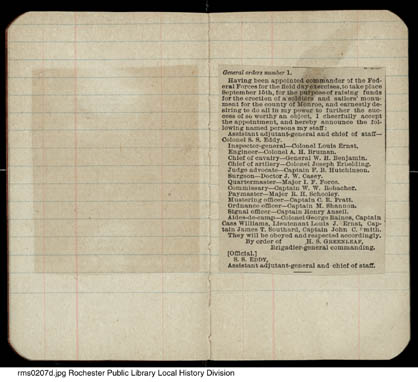 General orders number 1.
Having been appointed commander of the Fed-
eral Forces for the field day exercises, to take place
September 15th, for the purpose of raising funds
for the erection of a soldiers and sailors' monu-
ment for the county of Monroe, and earnestly de-
siring to do all in my power to further the suc-
cess of so worthy an object, I cheerfully accept
the appointment, and hereby announce the fol-
lowing named persons my staff:
Assistant adjutant-general and chief of staff—
Colonel S. S. Eddy.
Inspector-general—Colonel Louis Ernst.
Engineer—Colonel A. H. Bruman.
Chief of cavalry—General W. H. Benjamin.
Chief of artillery—Colonel Joseph Erbelding.
Judge advocate—Captain F. B. Hutchinson.
Surgeon—Doctor J. W. Casey.
Quartermaster—Major I. F. Force.
Commissary—Captain W. W. Robacher.
Paymaster—Major R. H. Schooley.
Mustering officer—Captain C. E. Pratt.
Ordnance officer—Captain M. Shannon.
Signal officer—Captain Henry Ansell.
Aides-de-camp—Colonel George Baines, Captain
Cass Williams, Lieutenant Louis J. Ernst, Cap-
tain James T. Southard, Captain John C. Smith.
They will be obeyed and respected accordingly.
By order of H. S. GREENLEAF,
Brigadier-general commanding.
[Official.]
S. S. EDDY,
Assistant adjutant-general and chief of staff.
rms0207d.jpg Rochester Public Library Local History Division